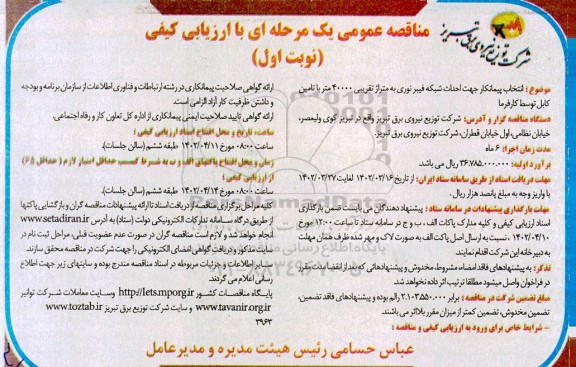 مناقصه عمومی یک مرحله ای با ارزیابی کیفی
(نوبت اول)
شرکت توزیع نیروی برق تبریز
موضوع : انتخاب پیمانکار جهت احداث شبکه فیبر نوری به متراژ تقریبی ۴۰۰۰۰ متر با تامین
کابل توسط کارفرما
دستگاه مناقصه گزار و آدرس: شرکت توزیع نیروی برق تبریز واقع در تبریز کوی ولیعصر،
خیابان نظامی، اول خیابان قطران، شرکت توزیع نیروی برق تبریز.
مدت زمان اجرا: ۶ ماه
برآورد اولیه: ۳۶.۷۸۵.۰۰۰.۰۰۰ ریال می باشد.
مهلت دریافت اسناد از طریق سامانه ستاد ایران: از تاریخ ۱۴۰۲/۰۳/۱۶ لغایت ۱۴۰۲/۰۳/۲۷
با واریز وجه به مبلغ پانصد هزار ریال.
مهلت بارگذاری پیشنهادات در سامانه ستاد : پیشنهاد دهندگان می بایست ضمن بارگذاری
اسناد ارزیابی کیفی و کلیه مدارک پاکات الف ، ب و ج در سامانه ستاد تا ساعت ۱۳:۰۰ مورخ
۱۴۰۲/۰۴/۱۰ نسبت به ارسال اصل پاکت الف به صورت لاک و مهر شده ظرف همان مهلت
به دبیرخانه این شرکت اقدام نمایند.
تذکر: به پیشنهادهای فاقد امضاء، مشروط، مخدوش و پیشنهادهائی که بعد از انقضاء مدت مقرر
در فراخوان واصل میشود مطلقا ترتیب اثر داده نخواهد شد
مبلغ تضمین شرکت در مناقصه : برابر ۲.۱۰۳.۵۵۰.۰۰۰ ریال بوده و پیشنهادهای فاقد تضمین،
تضمین مخدوش، تضمین کمتر از میزان مقرر بلااثر می باشند.
- شرایط خاص برای ورود به ارزیابی کیفی و مناقصه :
ارائه گواهی صلاحیت پیمانکاری در رشته ارتباطات و فناوری اطلاعات از سازمان برنامه و بودجه
و داشتن ظرفیت کار آزاد الزامی است.
ارائه گواهی تایید صلاحیت ایمنی پیمانکاری از اداره کل تعاون کار و رفاه اجتماعی.
ساعت، تاریخ و محل افتتاح اسناد ارزیابی کیفی :
ساعت ۰۸:۰۰ مورخ ۱۴۰۲/۰۴/۱۱ طبقه ششم (سالن جلسات).
زمان و محل افتتاح پاکتهای الف و ب به شرط کسب حداقل امتیاز لازم ( حداقل ۶۵)
از ارزیابی کیفی :
ساعت ۰۸:۰۰ مورخ ۱۴۰۲/۰۴/۱۴ طبقه ششم (سالن جلسات).
کلیه مراحل برگزاری مناقصه از دریافت اسناد تا ارائه پیشنهادات مناقصه گران و بازگشایی پاکتها
از طریق درگاه سامانه تدارکات الکترونیکی دولت (ستاد) به آدرس www.setadiran.ir
انجام خواهد شد و لازم است مناقصه گران در صورت عدم عضویت قبلی، مراحل ثبت نام در
سایت مذکور و دریافت گواهی امضای الکترونیکی را جهت شرکت در مناقصه محقق سازند
سایر اطلاعات و جزئیات مربوطه در اسناد مناقصه مندرج بوده و سایتهای زیر جهت اطلاع
رسانی اعلام می گردند.
پایگاه مناقصات کشور http://iets.mporg.ir وسایت معاملات شرکت توانیر
www.tavanir.org.ir و سایت شرکت توزیع برق تبریز www.toztab.ir
۳۹۶۳
عباس حسامی رئیس هیئت مدیره و مدیرعامل